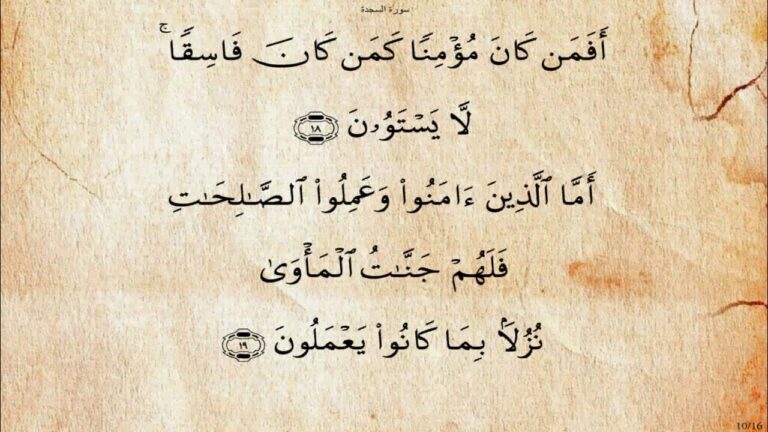 سورة السجدة
أَفَمَن كَانَ مُؤْمِنًا كَمَن كَانَ فَاسِقًا ۚ
لَّا يَسْتَوُۥنَ ١٨
أَمَّا ٱلَّذِينَ ءَامَنُوا۟ وَعَمِلُوا۟ ٱلصَّـٰلِحَـٰتِ
فَلَهُمْ جَنَّـٰتُ ٱلْمَأْوَىٰ
نُزُلًۢا بِمَا كَانُوا۟ يَعْمَلُونَ ١٩
10/16